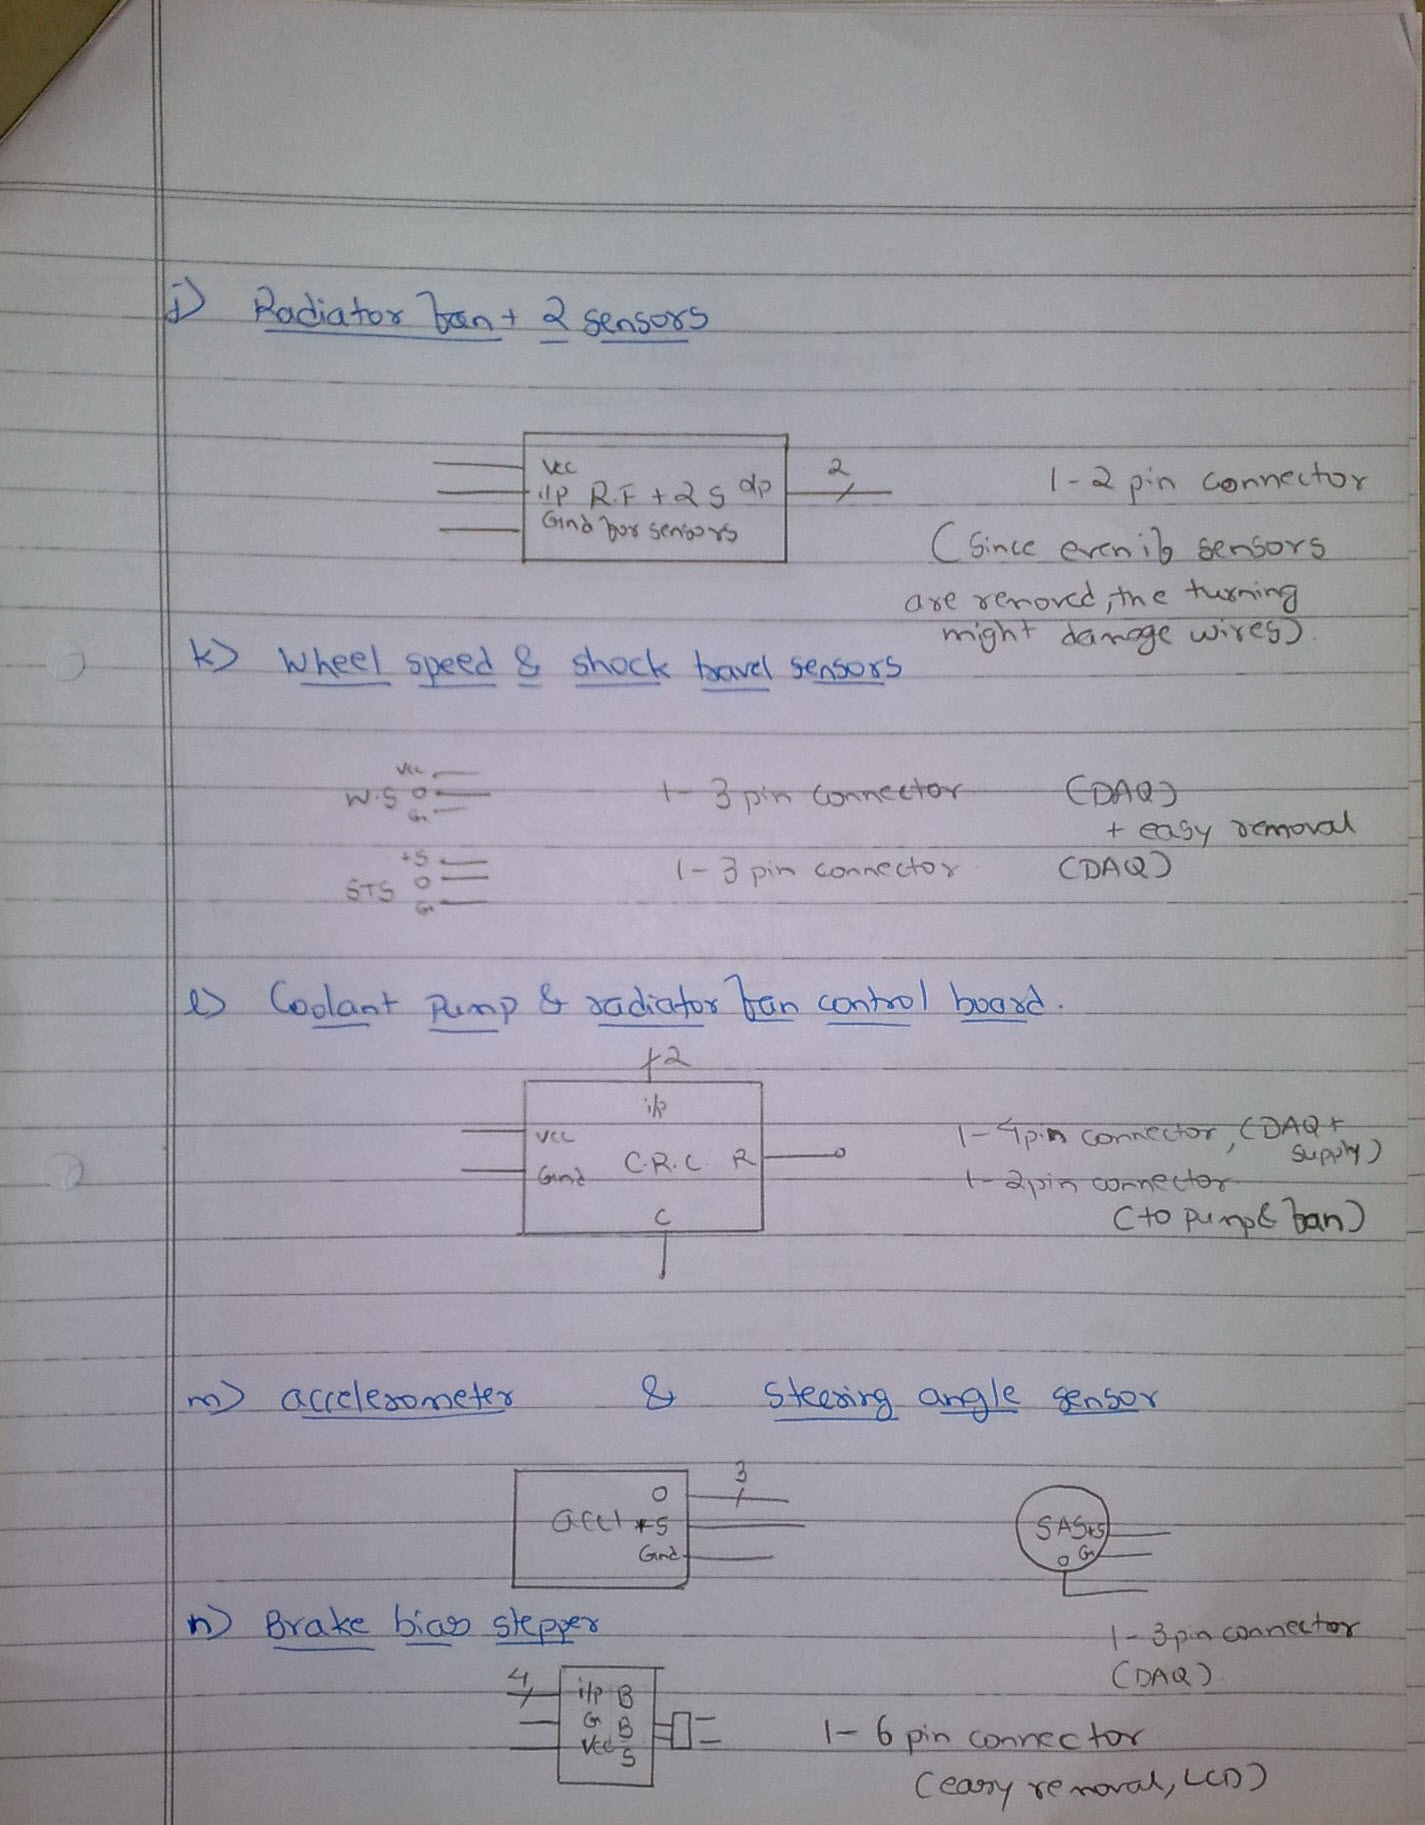 j) Radiator fan + 2 sensors
2
Vcc
i/p R.F + 2 S o/p
Gnd for sensors
1-2 pin connector
(Since even if sensors
are removed, the turning
might damage wires).
k) Wheel speed & shock travel sensors
Vcc
W.S O
G
1-3 pin connector (DAQ)
+ easy removal
+5
STS O
G
1-3 pin connector (DAQ)
l) Coolant Pump & radiator fan control board.
2
i/p
Vcc
C.R.C. R
Gnd
C
1-4pin connector, (DAQ+
supply)
1-2pin connector
(to pump & fan)
m) accelerometer & Steering angle sensor
3
O
accl +5
Gnd
SAS +5
O G
n) Brake bias stepper
1-3pin connector
(DAQ)
4
i/p B
G B
Vcc S
1-6 pin connector
(easy removal, LCD)